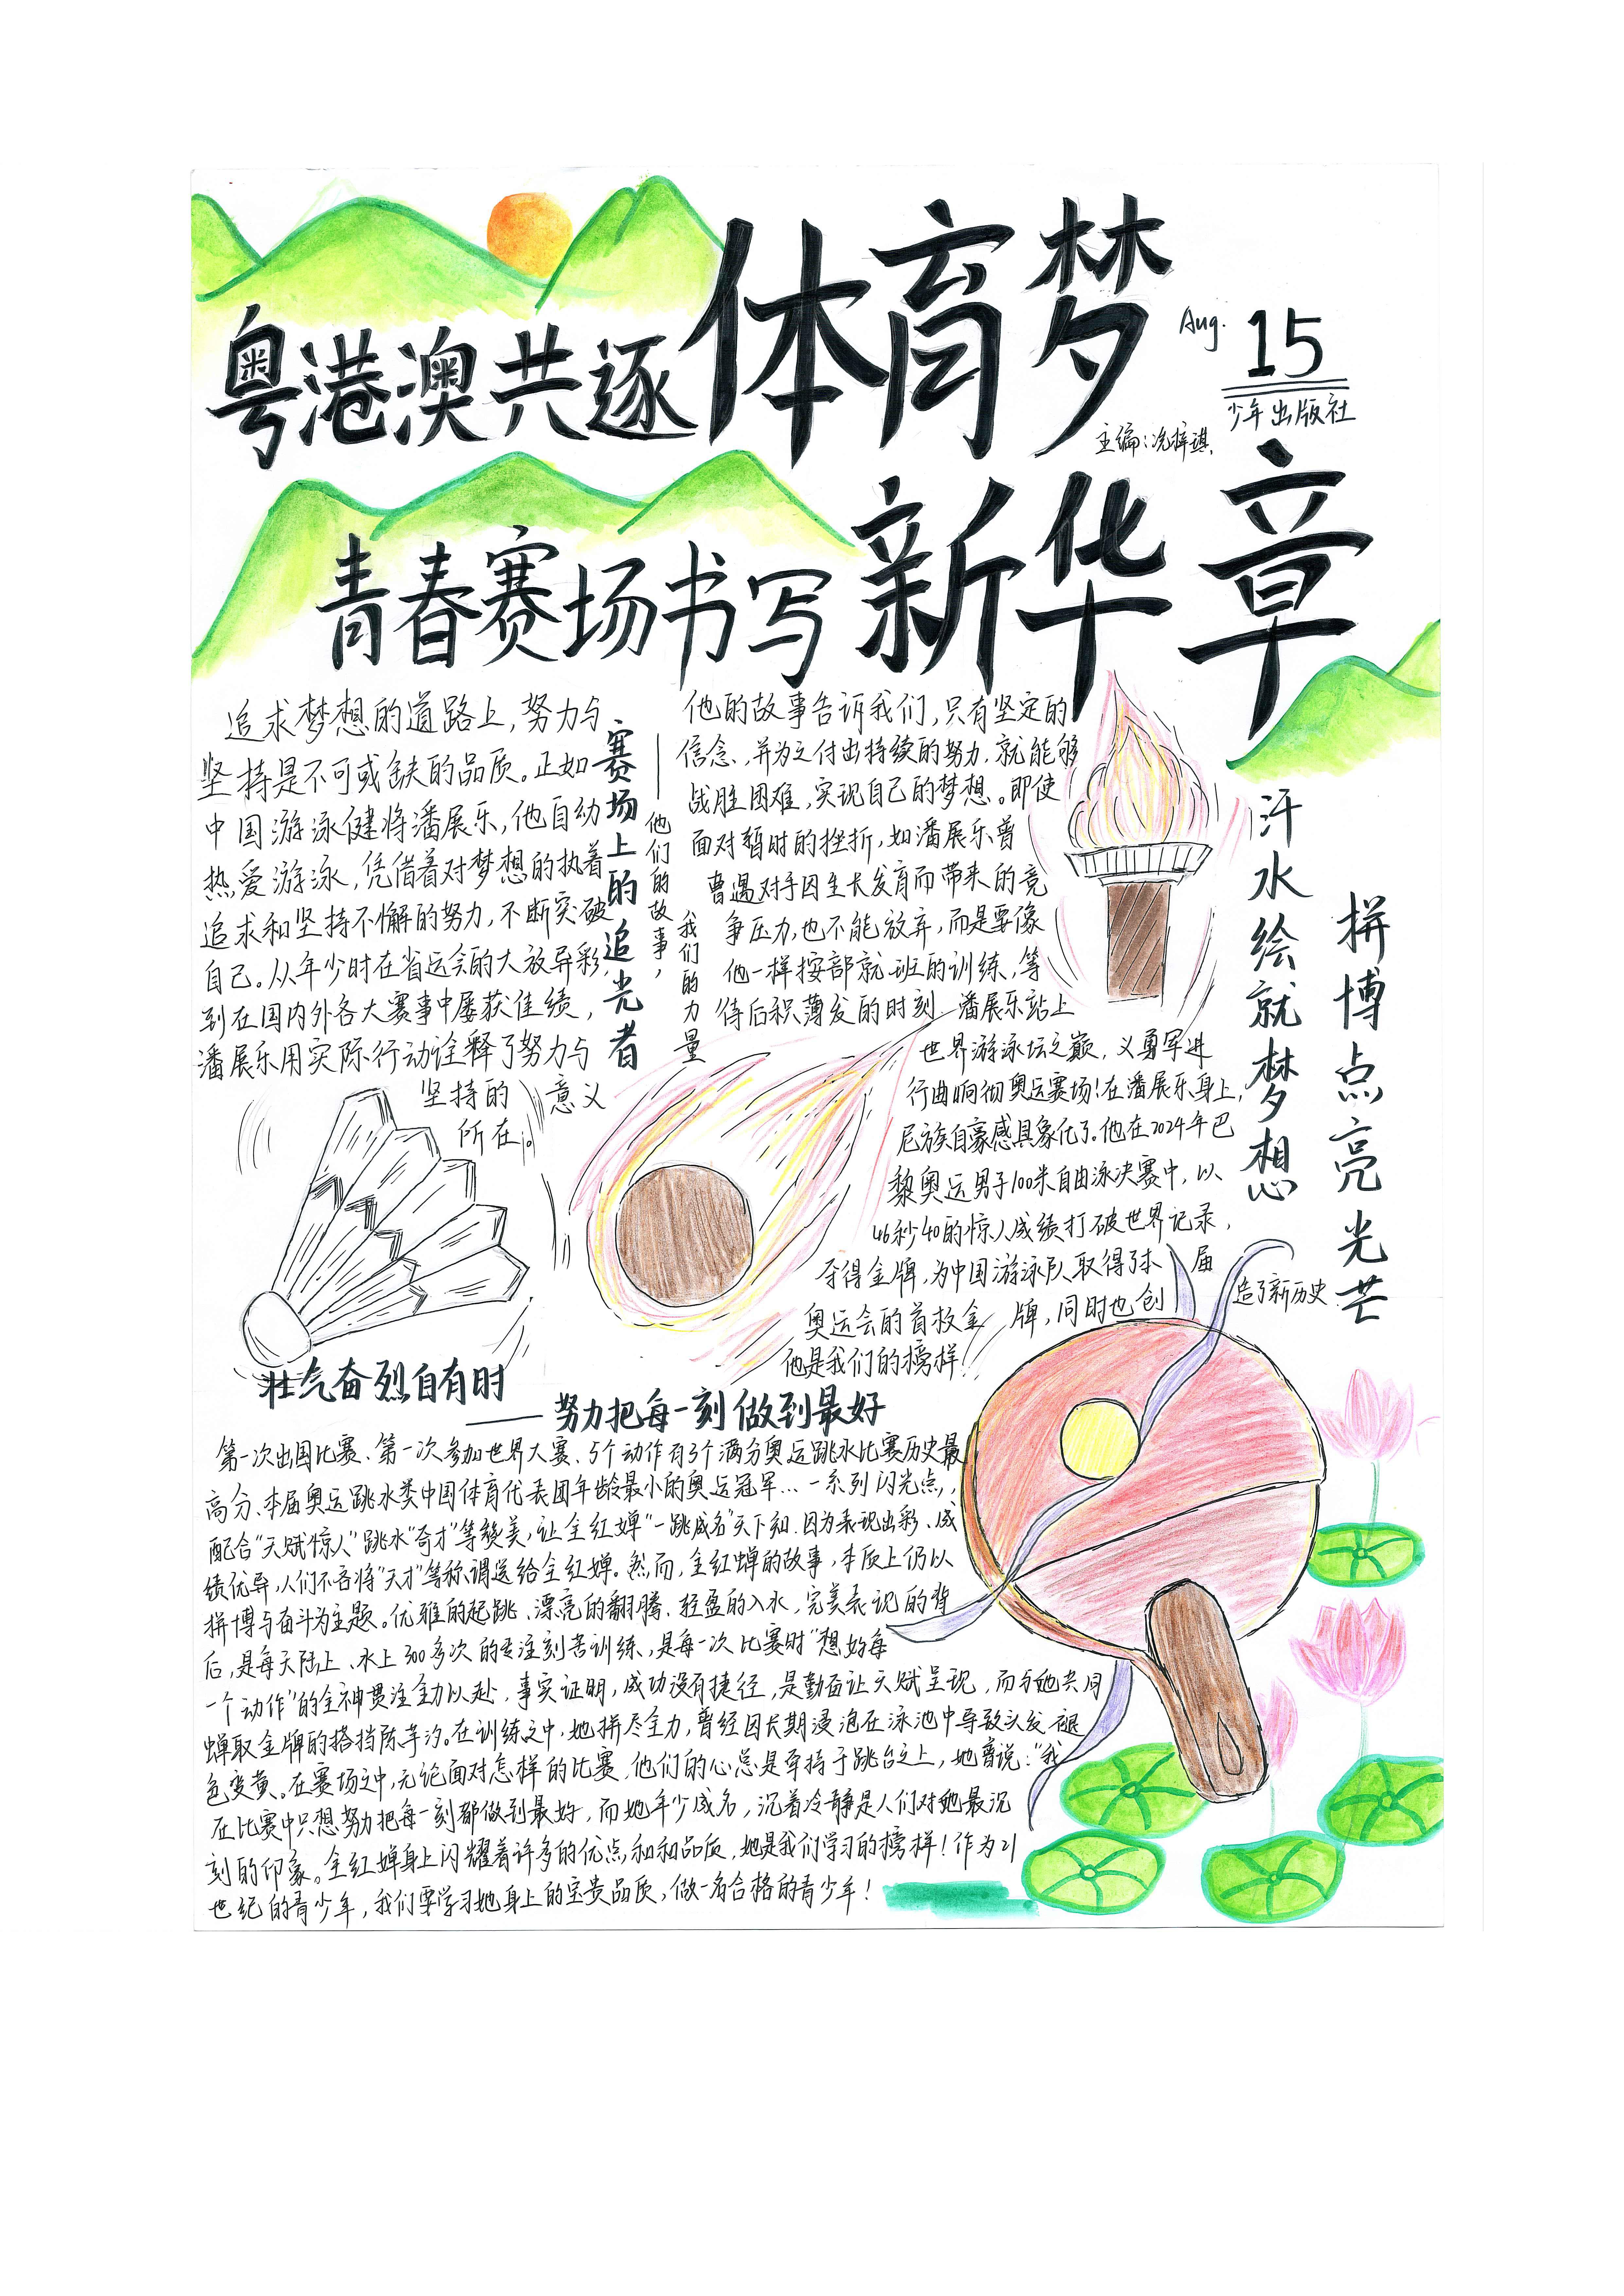 粤港澳共逐体育梦
Aug. 15
少年出版社
主编：冼梓琪
青春赛场书写新华章
追求梦想的道路上，努力与
坚持是不可或缺的品质。正如
中国游泳健将潘展乐，他自幼
热爱游泳，凭借着对梦想的执着
追求和坚持不懈的努力，不断突破
自己。从年少时在省运会的大放异彩，
到在国内外各大赛事中屡获佳绩，
潘展乐用实际行动诠释了努力与
坚持的意义
所在。
赛场上的追光者
——他们的故事，
我们的力量
他的故事告诉我们，只有坚定的
信念，并为之付出持续的努力，就能够
战胜困难，实现自己的梦想。即使
面对暂时的挫折，如潘展乐曾
曹遇对手因生长发育而带来的竞
争压力，也不能放弃，而是要像
他一样按部就班的训练，等
待后积薄发的时刻 潘展乐站上
世界游泳坛之巅，义勇军进
行曲响彻奥运赛场！在潘展乐身上，
尼族自豪感具象化了。他在2024年巴
黎奥运男子100米自由泳决赛中，以
46秒40的惊人成绩打破世界记录，
夺得金牌，为中国游泳队取得了本届
奥运会的首枚金牌，同时也创造了新历史.
他是我们的榜样！
汗水绘就梦想
拼博点亮光芒
壮气奋烈自有时
——努力把每一刻做到最好
第一次出国比赛、第一次参加世界大赛、5个动作有3个满分奥运跳水比赛历史最
高分、本届奥运跳水类中国体育代表团年龄最小的奥运冠军…一系列闪光点，
配合“天赋惊人”跳水“奇才”等赞美，让全红婵“一跳成名”天下知.因为表现出彩、成
绩优异，人们不吝将“天才”等称谓送给全红婵。然而，全红蝉的故事，本质上仍以
拼博与奋斗为主题。优雅的起跳、漂亮的翻腾、轻盈的入水，完美表现的背
后，是每天陆上、水上300多次的专注刻苦训练，是每一次比赛时“想好每
一个动作”的全神贯注全力以赴，事实证明，成功没有捷径，是勤奋让天赋呈现，而与她共同
蝉取金牌的搭挡陈芋汐。在训练之中，她拼尽全力，曾经因长期浸泡在泳池中导致头发褪
色变黄。在赛场之中，无论面对怎样的比赛，他们的心总是牵挂于跳台之上，她曾说：“我
在比赛中只想努力把每一刻都做到最好，而她年少成名，沉着冷静是人们对她最沉
刻的印象。全红婵身上闪耀着许多的优点和和品质，她是我们学习的榜样！作为21
世纪的青少年，我们要学习她身上的宝贵品质，做一名合格的青少年！